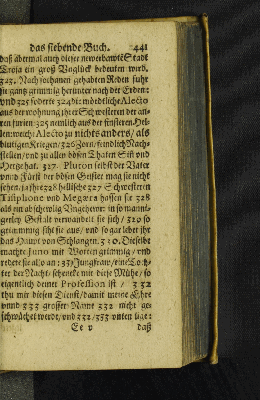 das siebende Buch. 441
daß abermal auch dieser neuerbawte Stadt
Troja ein groß Unglück bedeuten wird.
323. Nach sothanen gehabten Reden fuhr
sie gantz grimmig herunter nach der Erden:
und 325 foderte 324 die mördtliche Alecto
aus der wohnung ihrer Schwesteren der an-
ren furien 325 nemlich aus der finsteren Hel-
len: welch' Alecto zu nichts anders/ als
blutigen Kriegen/ 326 Zorn/ feindlich Nach-
stellen/ und zu allen bösen Thaten Sin und
Hertze hat. 327. Pluton selbst der Vater
unnd Fürst der bösen Geister mag sie nicht
sehen. ja ihre 328 hellische 327 Schwesteren
Tisiphone und Megæra hassen sie 328
als ein abschewlig Ungehewr: in so manni-
gerley Gestalt verwandelt sie sich / 329 so
grimmig siht sie aus/ und so gar lebet ihr
das Haupt von Schlangen. 330. Dieselbe
machte Juno mit Worten grimmig/ und
redete sie also an: 331 Jungfraw/ eine Toch-
ter der Nacht/ schencke mir diese Mühe/ so
eigentlich deiner Profession ist / 332
thu mir diesen Dienst/ damit meine Ehre
unnd 333 grosser Name 332 nicht ge-
schwächet werde/ und 332/333 unten lige:
Ee v daß